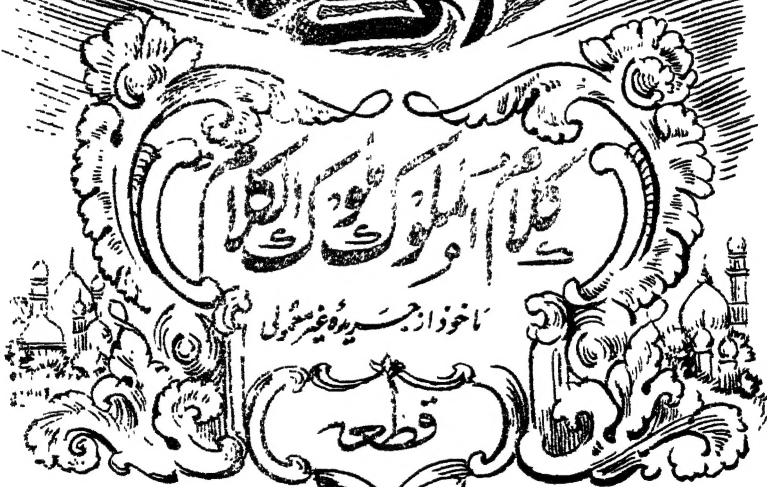 کلام الملوک ملوک الکلام
ماخوذ از جریدۂ غیر معمولی
قطعہ